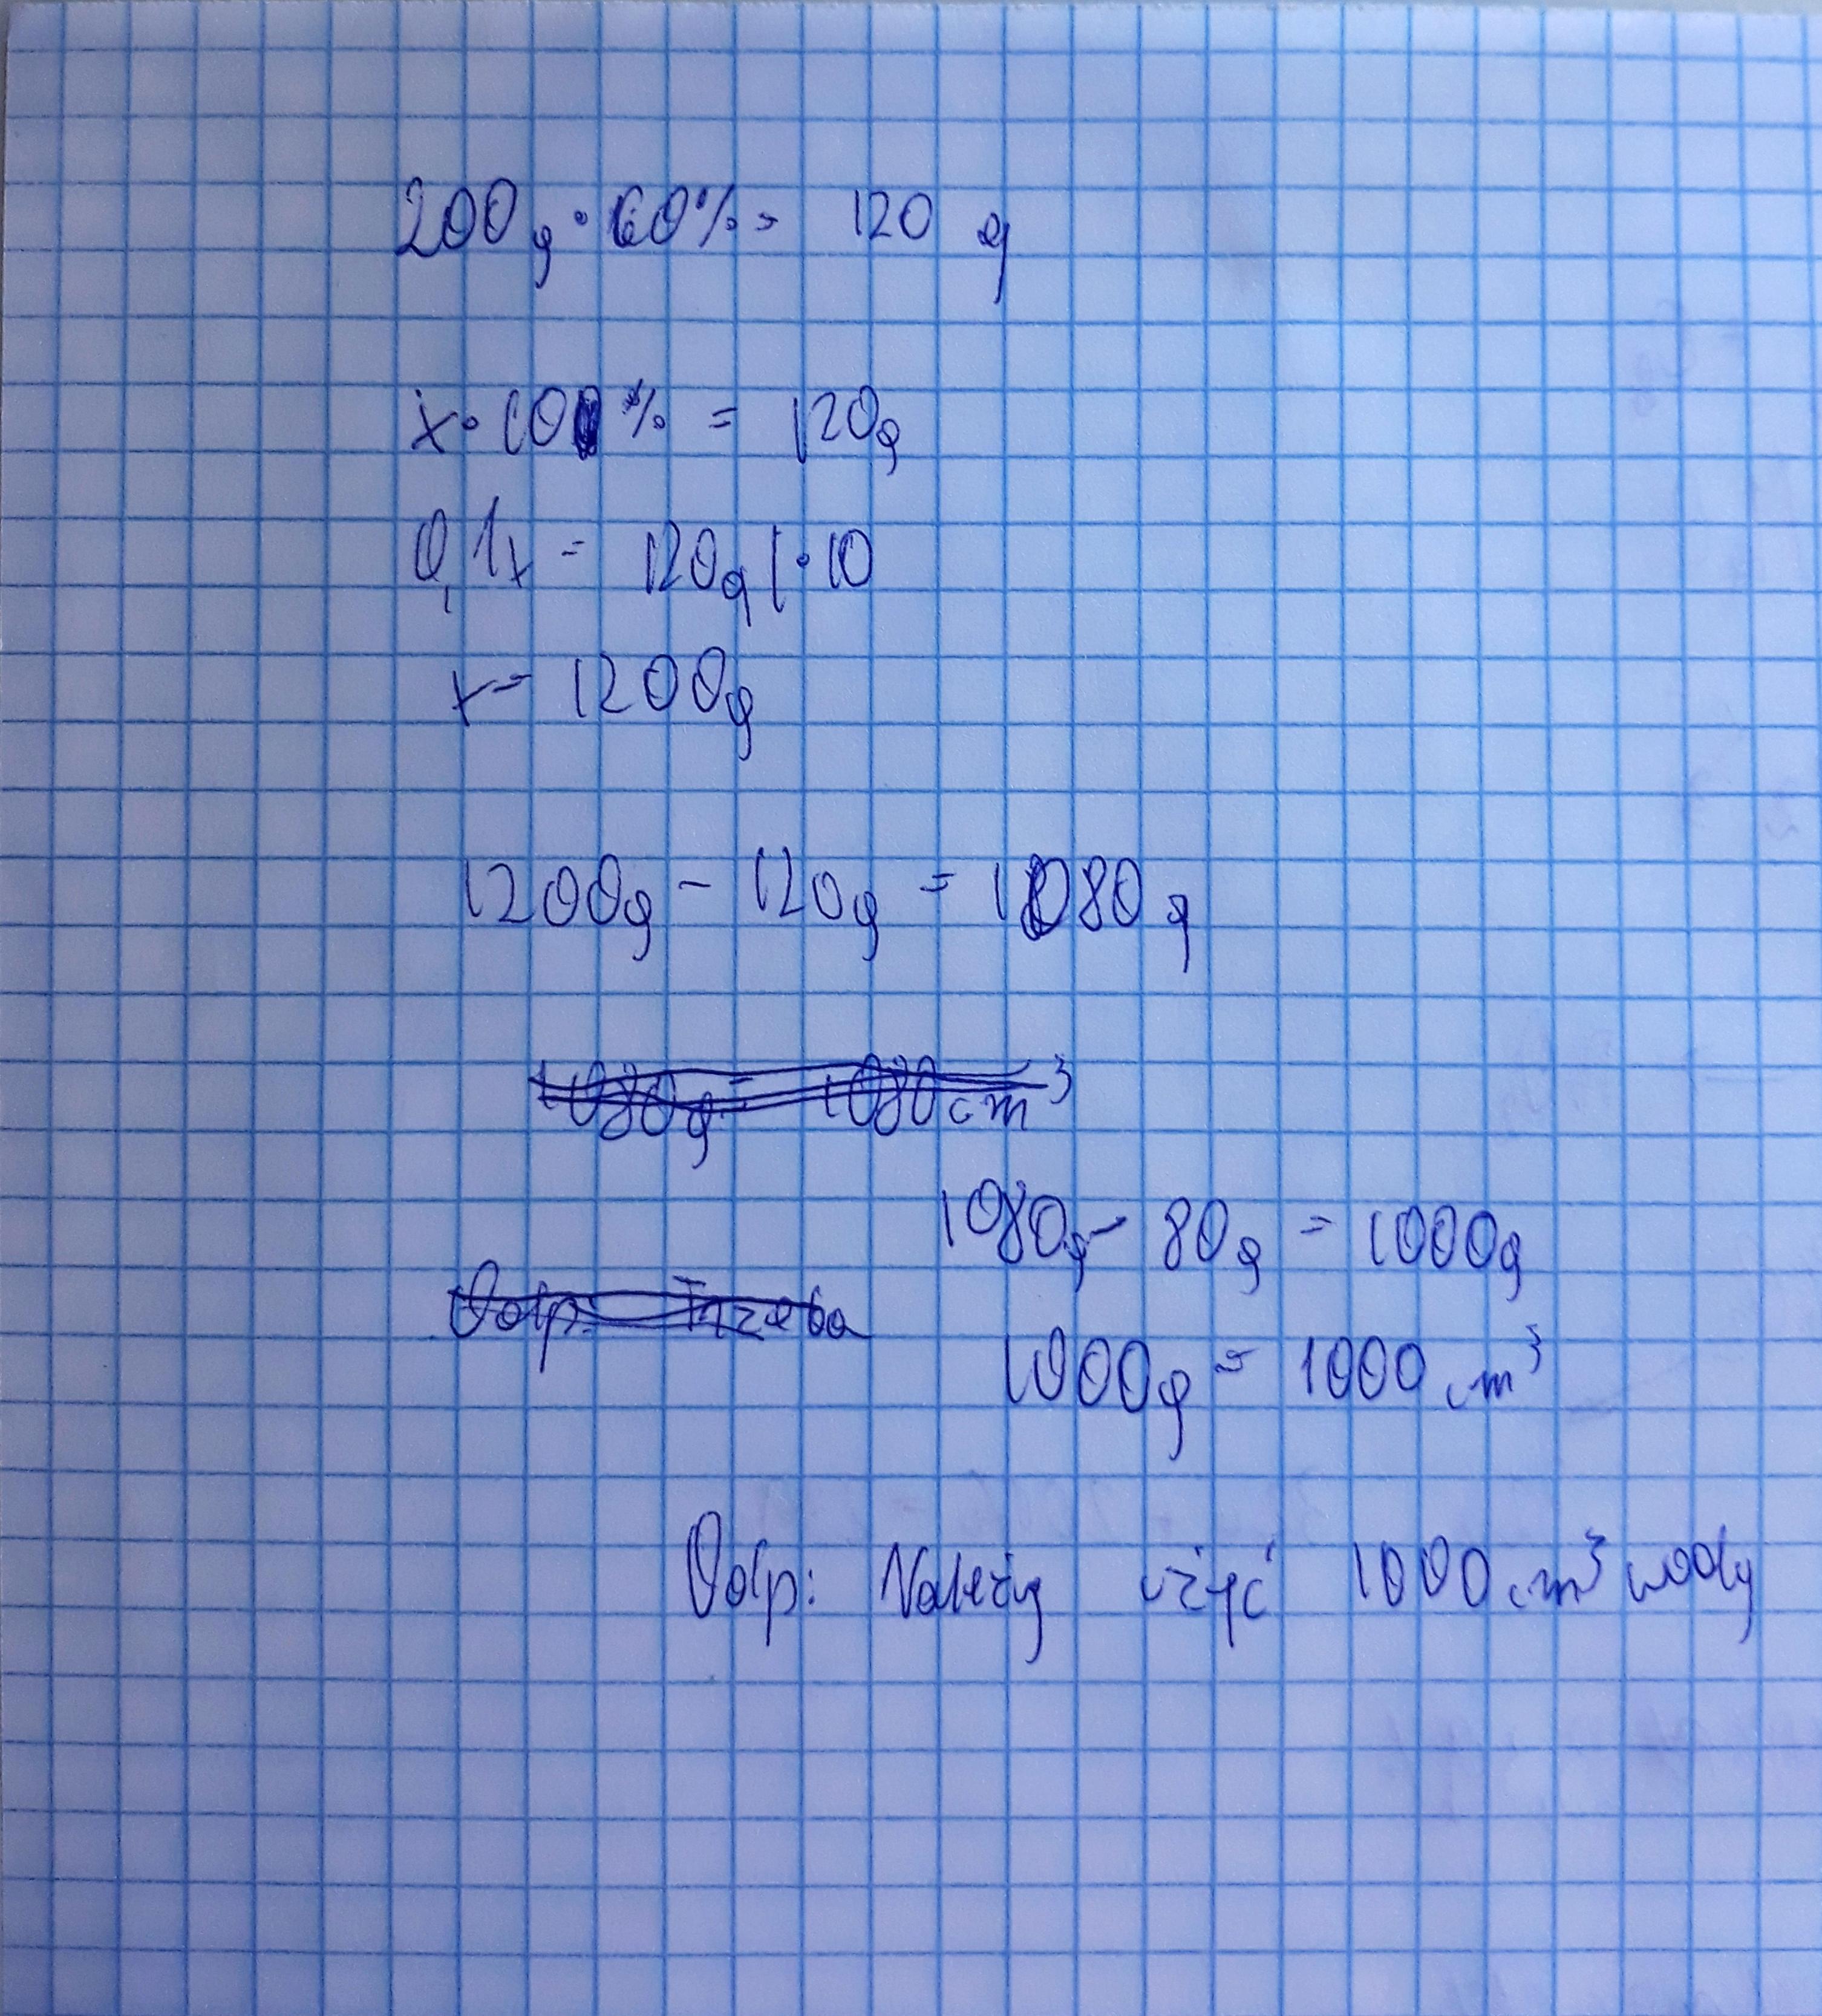 200g · 60% = 120 g
x · 10% = 120g
0,1x = 120g |·10
x = 1200g
1200g - 120g = 1080g
1080g = 1080cm³
1080g - 80g = 1000g
Odp: Trzeba
1000g = 1000 cm³
Odp: Należy użyć 1000 cm³ wody